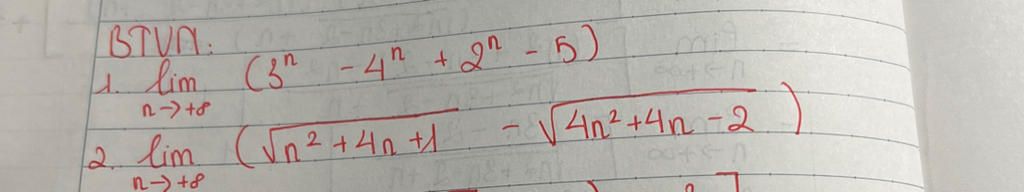 BTVN:
1. lim (3ⁿ - 4ⁿ + 2ⁿ - 5)
n→+8
2. lim (√(n²+4n+1) - √(4n²+4n-2))
n→+8